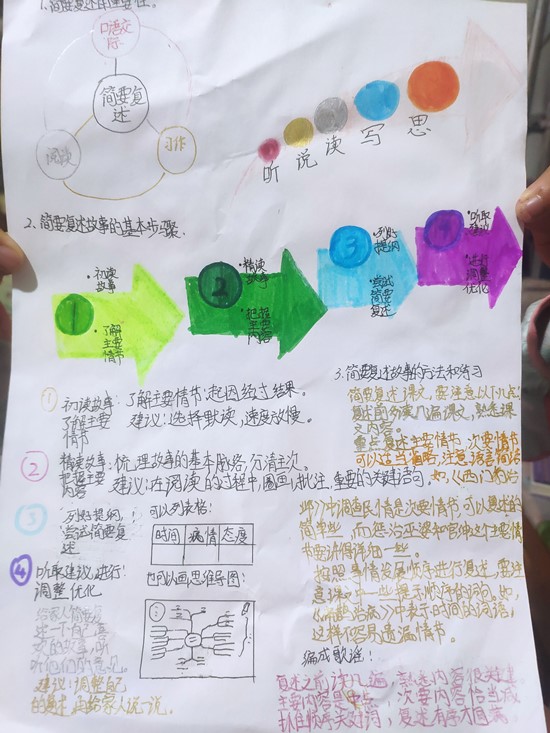 1.简要复述的重要性。
口语交际
简要复述
阅读
习作
听 说 读 写 思
2.简要复述故事的基本步骤。
1
·初读故事
·了解主要情节
2
·精读故事
·把握主要内容
3
·列好提纲
·尝试简要复述
4
·听取建议
·进行调整优化
① 初读故事,了解主要情节
了解主要情节:起因经过结果。
建议:选择默读,速度放慢。
② 精读故事,把握主要内容
梳理故事的基本脉络,分清主次。
建议:在阅读的过程中,圈画、批注、重要的关键语句
③ 列好提纲,尝试简要复述
可以列表格:
时间 病情 态度
也可以画思维导图:
④ 听取建议,进行调整优化
给家人简要复
述一个自己喜
欢的故事,听
听他们的意见。
建议:调整自己
的复述,再给家人说一说。
3.简要复述故事的方法和练习
简要复述课文,要注意以下几点:
复述前多读几遍课文,熟悉课
文内容。
重点复述主要情节,次要情节
可以适当省略,注意语言简洁
如,《西门豹治
邺》中调查民情是次要情节,可以复述的
简单些,而惩治巫婆和官绅这个主要情
节要讲得详细一些。
按照事情发展顺序进行复述,要注
意课文中一些提示顺序的词句,如,
《扁鹊治病》中表示时间的词语,
这样不容易遗漏情节。
编成歌谣:
复述之前读几遍,熟悉内容很关键
主要内容是重点,次要内容恰当减
抓住顺序关键词,复述有序才圆满